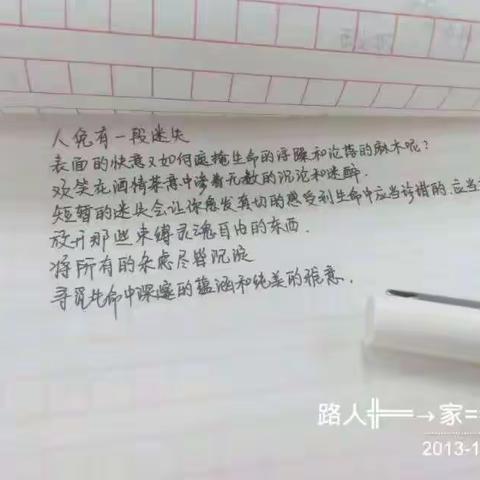 人免有一段迷失
表面的快意又如何遮掩生命的浮躁和沦落的麻木呢?
欢笑花酒情茶意中渗着无数的沉沦和迷醉.
短暂的迷失会让你愈发真切的感受到生命中应当珍惜的,应当
放开那些束缚灵魂自由的东西.
将所有的杂虑尽皆沉淀
寻觅生命中深邃的蕴涵和纯美的惬意.
路人╬══→家=
2013-1